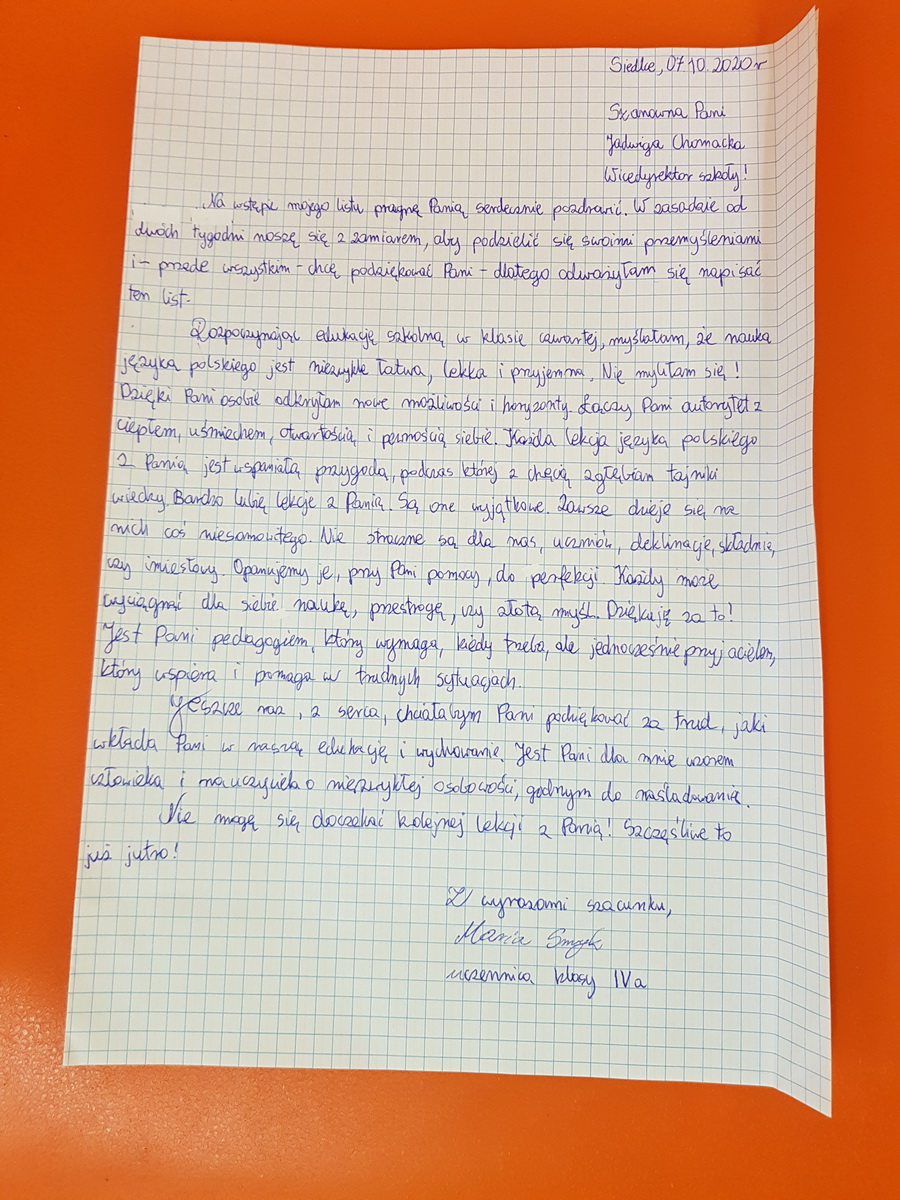 Siedlce, 07.10.2020r
Szanowna Pani
Jadwiga Chomacka
Wicedyrektor szkoły!
Na wstępie mojego listu pragnę Panią serdecznie pozdrowić. W zasadzie od
dwóch tygodni noszę się z zamiarem, aby podzielić się swoimi przemyśleniami
i - przede wszystkim - chcę podziękować Pani - dlatego odważyłam się napisać
ten list.
Rozpoczynając edukację szkolną w klasie czwartej, myślałam, że nauka
języka polskiego jest niezwykle łatwa, lekka i przyjemna. Nie myliłam się!
Dzięki Pani osobie odkryłam nowe możliwości i horyzonty. Łączy Pani autorytet z
ciepłem, uśmiechem, otwartością i pewnością siebie. Każda lekcja języka polskiego
z Panią jest wspaniałą przygodą, podczas której z chęcią zgłębiam tajniki
wiedzy. Bardzo lubię lekcje z Panią. Są one wyjątkowe. Zawsze dzieje się na
nich coś niesamowitego. Nie straszne są dla nas, uczniów, deklinacje, składnie,
czy imiesłowy. Opanujemy je, przy Pani pomocy, do perfekcji. Każdy może
wyciągnąć dla siebie naukę, przestrogę, czy złotą myśl. Dziękuję za to!
Jest Pani pedagogiem, który wymaga, kiedy trzeba, ale jednocześnie przyjacielem,
który wspiera i pomaga w trudnych sytuacjach.
Jeszcze raz, z serca, chciałabym Pani podziękować za trud, jaki
wkłada Pani w naszą edukację i wychowanie. Jest Pani dla mnie wzorem
człowieka i nauczyciela o niezwykłej osobowości, godnym do naśladowania.
Nie mogę się doczekać kolejnej lekcji z Panią! Szczęśliwie to
już jutro!
Z wyrazami szacunku,
Maria Smyk
uczennica klasy IV a